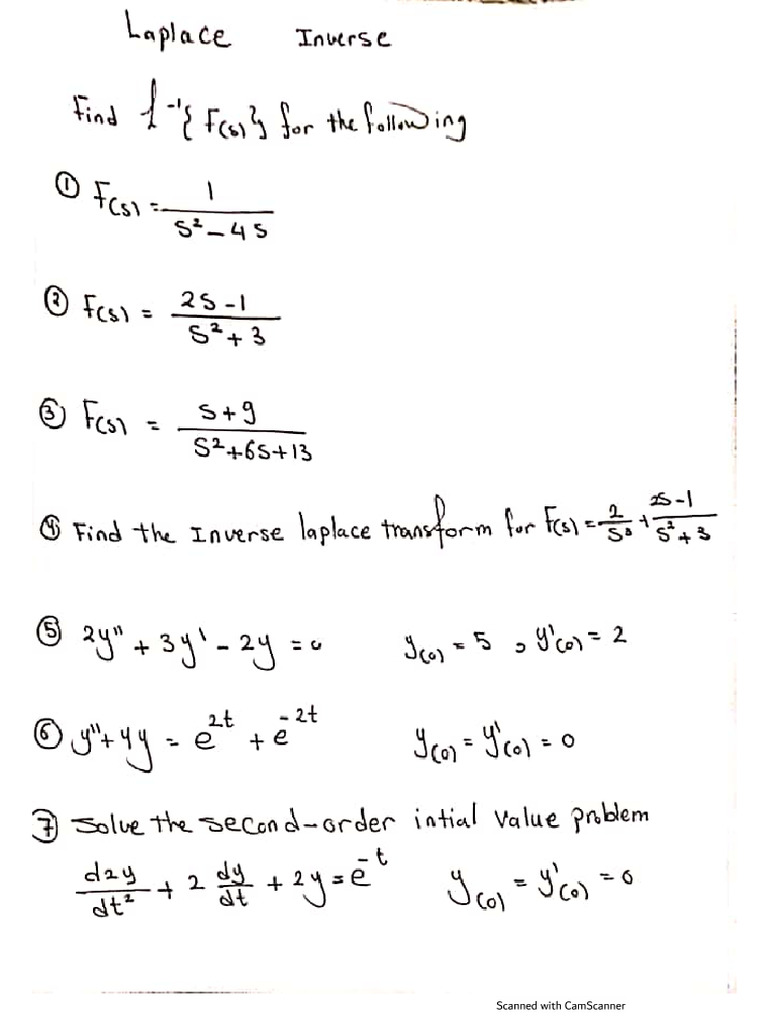 Laplace Inverse
Find ℒ⁻¹{F(s)} for the following
① F(s) = 1 / (s² - 4s)
② F(s) = (2s - 1) / (s² + 3)
③ F(s) = (s + 9) / (s² + 6s + 13)
④ Find the Inverse laplace transform for F(s) = 2/s³ + (2s - 1)/(s² + 3)
⑤ 2y'' + 3y' - 2y = 0 y(0) = 5 , y'(0) = 2
⑥ y'' + 4y = e^2t + e^-2t y(0) = y'(0) = 0
⑦ Solve the second-order intial value problem
d2y/dt² + 2 dy/dt + 2y = e^-t y(0) = y'(0) = 0
Scanned with CamScanner